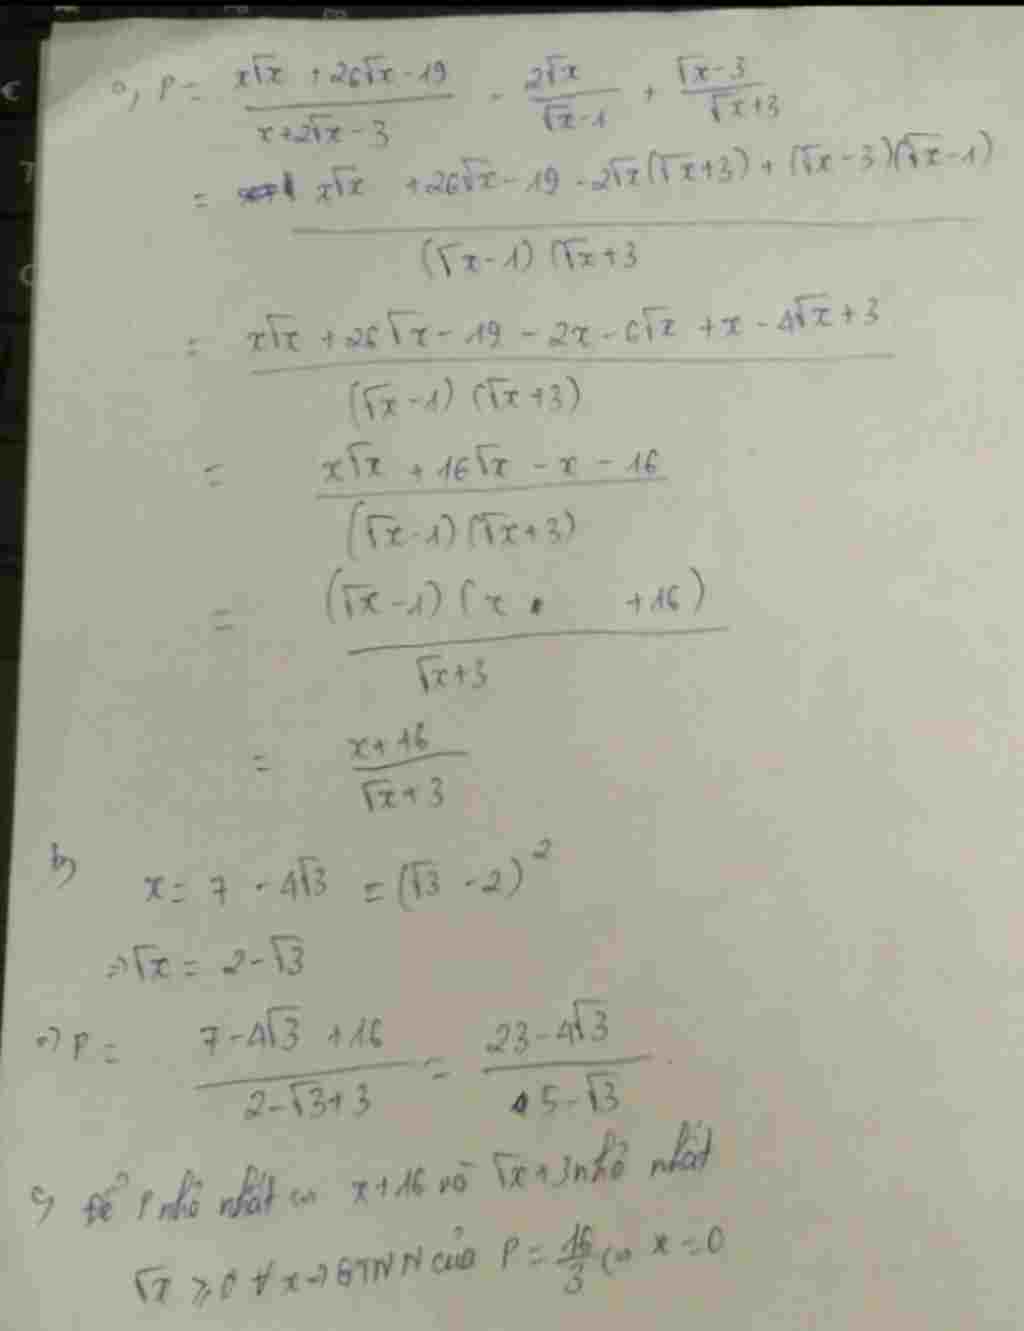 a, P = (x√x + 26√x - 19)/(x + 2√x - 3) - 2√x/(√x - 1) + (√x - 3)/(√x + 3)
= (x√x + 26√x - 19 - 2√x(√x+3) + (√x - 3)(√x - 1))/((√x - 1)(√x + 3)
= (x√x + 26√x - 19 - 2x - 6√x + x - 4√x + 3)/((√x - 1)(√x + 3))
= (x√x + 16√x - x - 16)/((√x - 1)(√x + 3))
= ((√x - 1)(x + 16))/(√x + 3)
= (x + 16)/(√x + 3)
b, x = 7 - 4√3 = (√3 - 2)²
=> √x = 2 - √3
=> P = (7 - 4√3 + 16)/(2 - √3 + 3) = (23 - 4√3)/(5 - √3)
c, Để P nhỏ nhất <=> x + 16 và √x + 3 nhỏ nhất
√x ≥ 0 ∀x => GTNN của P = 16/3 <=> x = 0